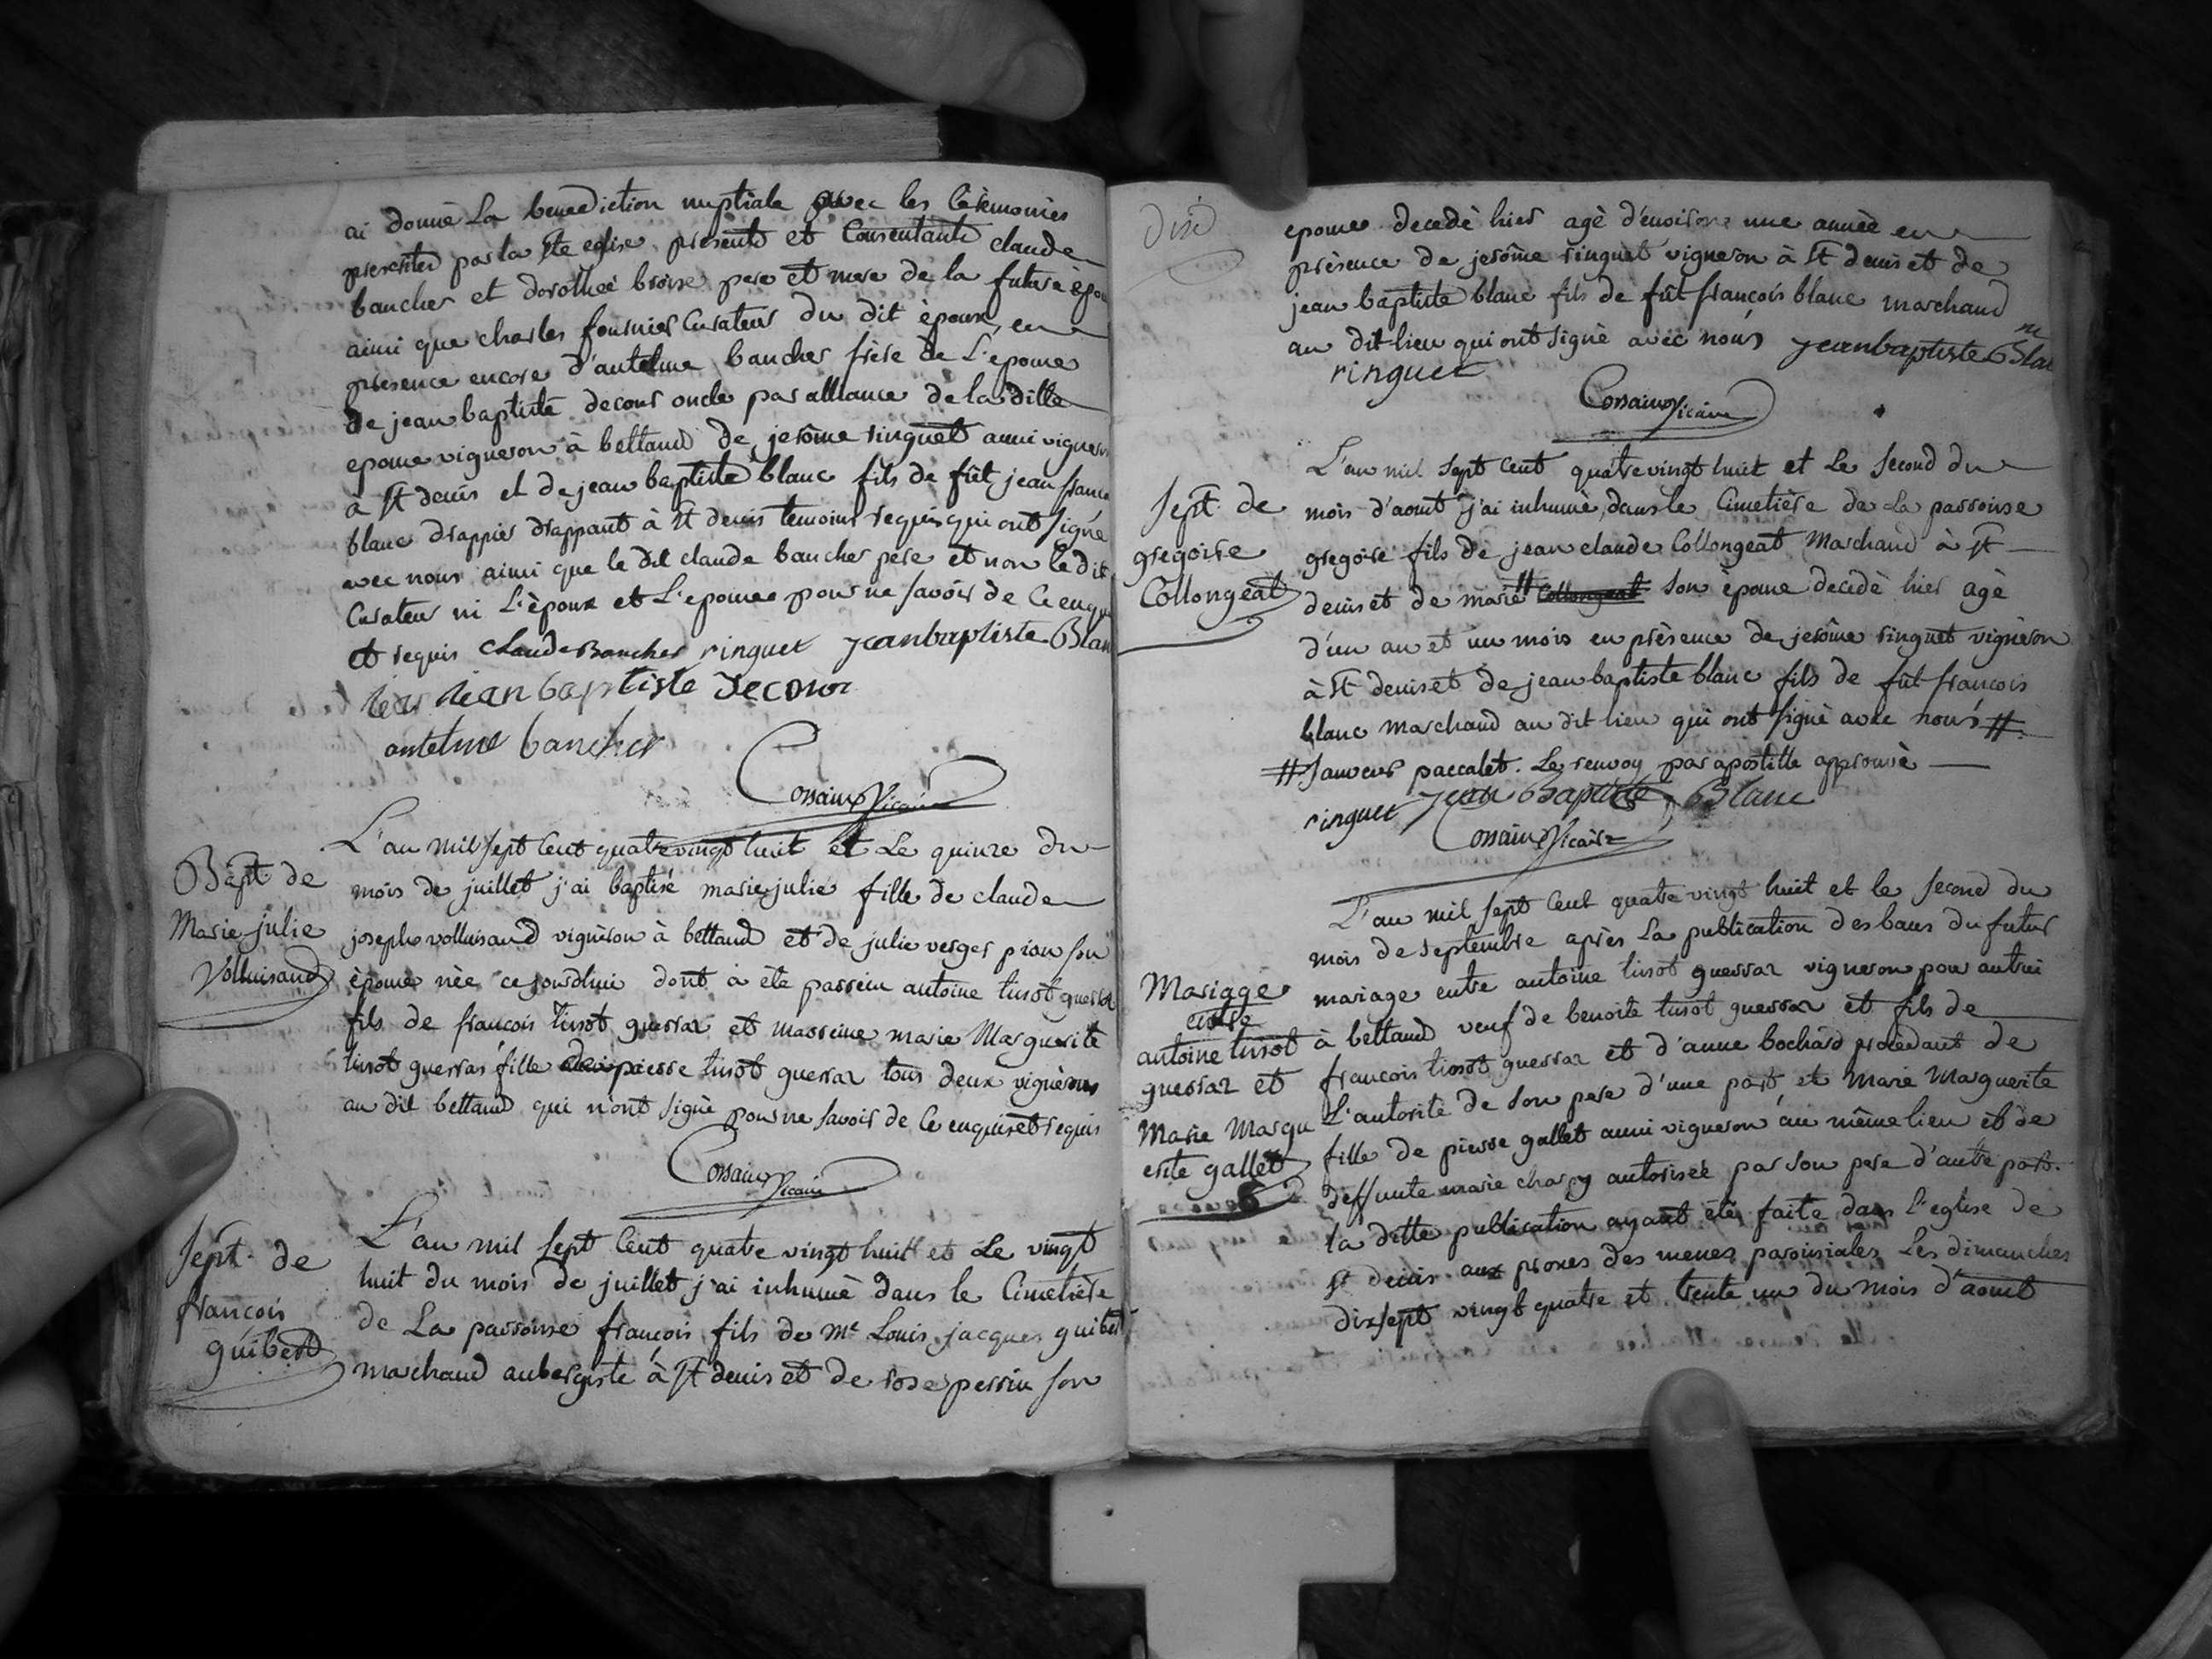 ai donné La benediction nuptiale avec les Cérémonies
prescrites par la Ste eglise presents et Consentants claude
baucher et dorothée broisse pere et mere de la future épou
ainsi que charles fournier Curateur du dit époux, en
présence encore d'antelme baucher frère de L'epouse
de jean baptiste decour oncle par alliance de la ditte
epouse vigneron à bettand de jerôme ringuet aussi vigneron
à St denis et de jean baptiste blanc fils de fût jean franco
blanc drappier drappant à St denis temoins requis qui ont signé
avec nous ainsi que le dit claude baucher pere et non le dit
Curateur ni L'époux et L'epouse pour ne savoir de Ce enqu
et requis Claude Baucher ringuet jeanbaptiste Blan
jean baptiste Decour
antelme baucher
Cossain Vicaire
L'an mil sept Cent quatrevingt huit et Le quinze du
Bapt de
Marie julie
Volluisand
mois de juillet j'ai baptisé marie julie fille de claude
joseph volluisand vigneron à bettand et de julie verger pion son
épouse née ce jourdhui dont à été parrein antoine tissot guerraz
fils de francois tissot guerraz et marreine marie Marguerite
tissot guerras fille de pierre tissot guerraz tous deux vignerons
au dit bettand qui n'ont signé pour ne savoir de Ce enquis et requis
Cossain Vicaire
Sept. de
francois
guibert
L'an mil sept Cent quatre vingt huit et Le vingt
huit du mois de juillet j'ai inhumé dans le Cimetière
de La parroisse francois fils de Me Louis jacques guibert
marchand aubergiste à St denis et de rose perrin son
epouse decedé hier agé d'environ une année en
présence de jerôme ringuet vigneron à St denis et de
jean baptiste blanc fils de fût francois blanc marchand
au dit lieu qui ont signé avec nous jeanbaptiste Blanc
ringuet
Cossain Vicaire
L'an mil sept Cent quatrevingt huit et Le second du
Sept. de
gregoire
Collongeat
mois d'aout j'ai inhumé, dans le Cimetière de La parroisse
gregoire fils de jean claude Collongeat Marchand à St
denis et de marie # Collongeat son épouse decedé hier agé
d'un an et un mois en présence de jerôme ringuet vigneron
à St denis et de jean baptiste blanc fils de fût francois
blanc marchand au dit lieu qui ont signé avec nous #.
# paccalet. Le renvoy par apostille approuvé
ringuet Jean Baptiste Blanc
Cossain Vicaire
L'an mil sept Cent quatre vingt huit et le second du
mois de septembre après La publication des bans du futur
Mariage
entre
antoine tissot
guerraz et
Marie Margu
erite gallet
mariage entre antoine tissot guerraz vigneron pour autrui
à bettand veuf de benoite tissot guerraz et fils de
francois tissot guerraz et d'anne bochard procédant de
L'autorité de son pere d'une part et Marie Marguerite
fille de pierre gallet aussi vigneron au même lieu et de
deffunte marie charpy autorisée par son pere d'autre part.
la ditte publication ayant été faite dans l'eglise de
St denis aux prones des messes paroissiales Les dimanches
dixsept vingt quatre et trente un du mois d'aout